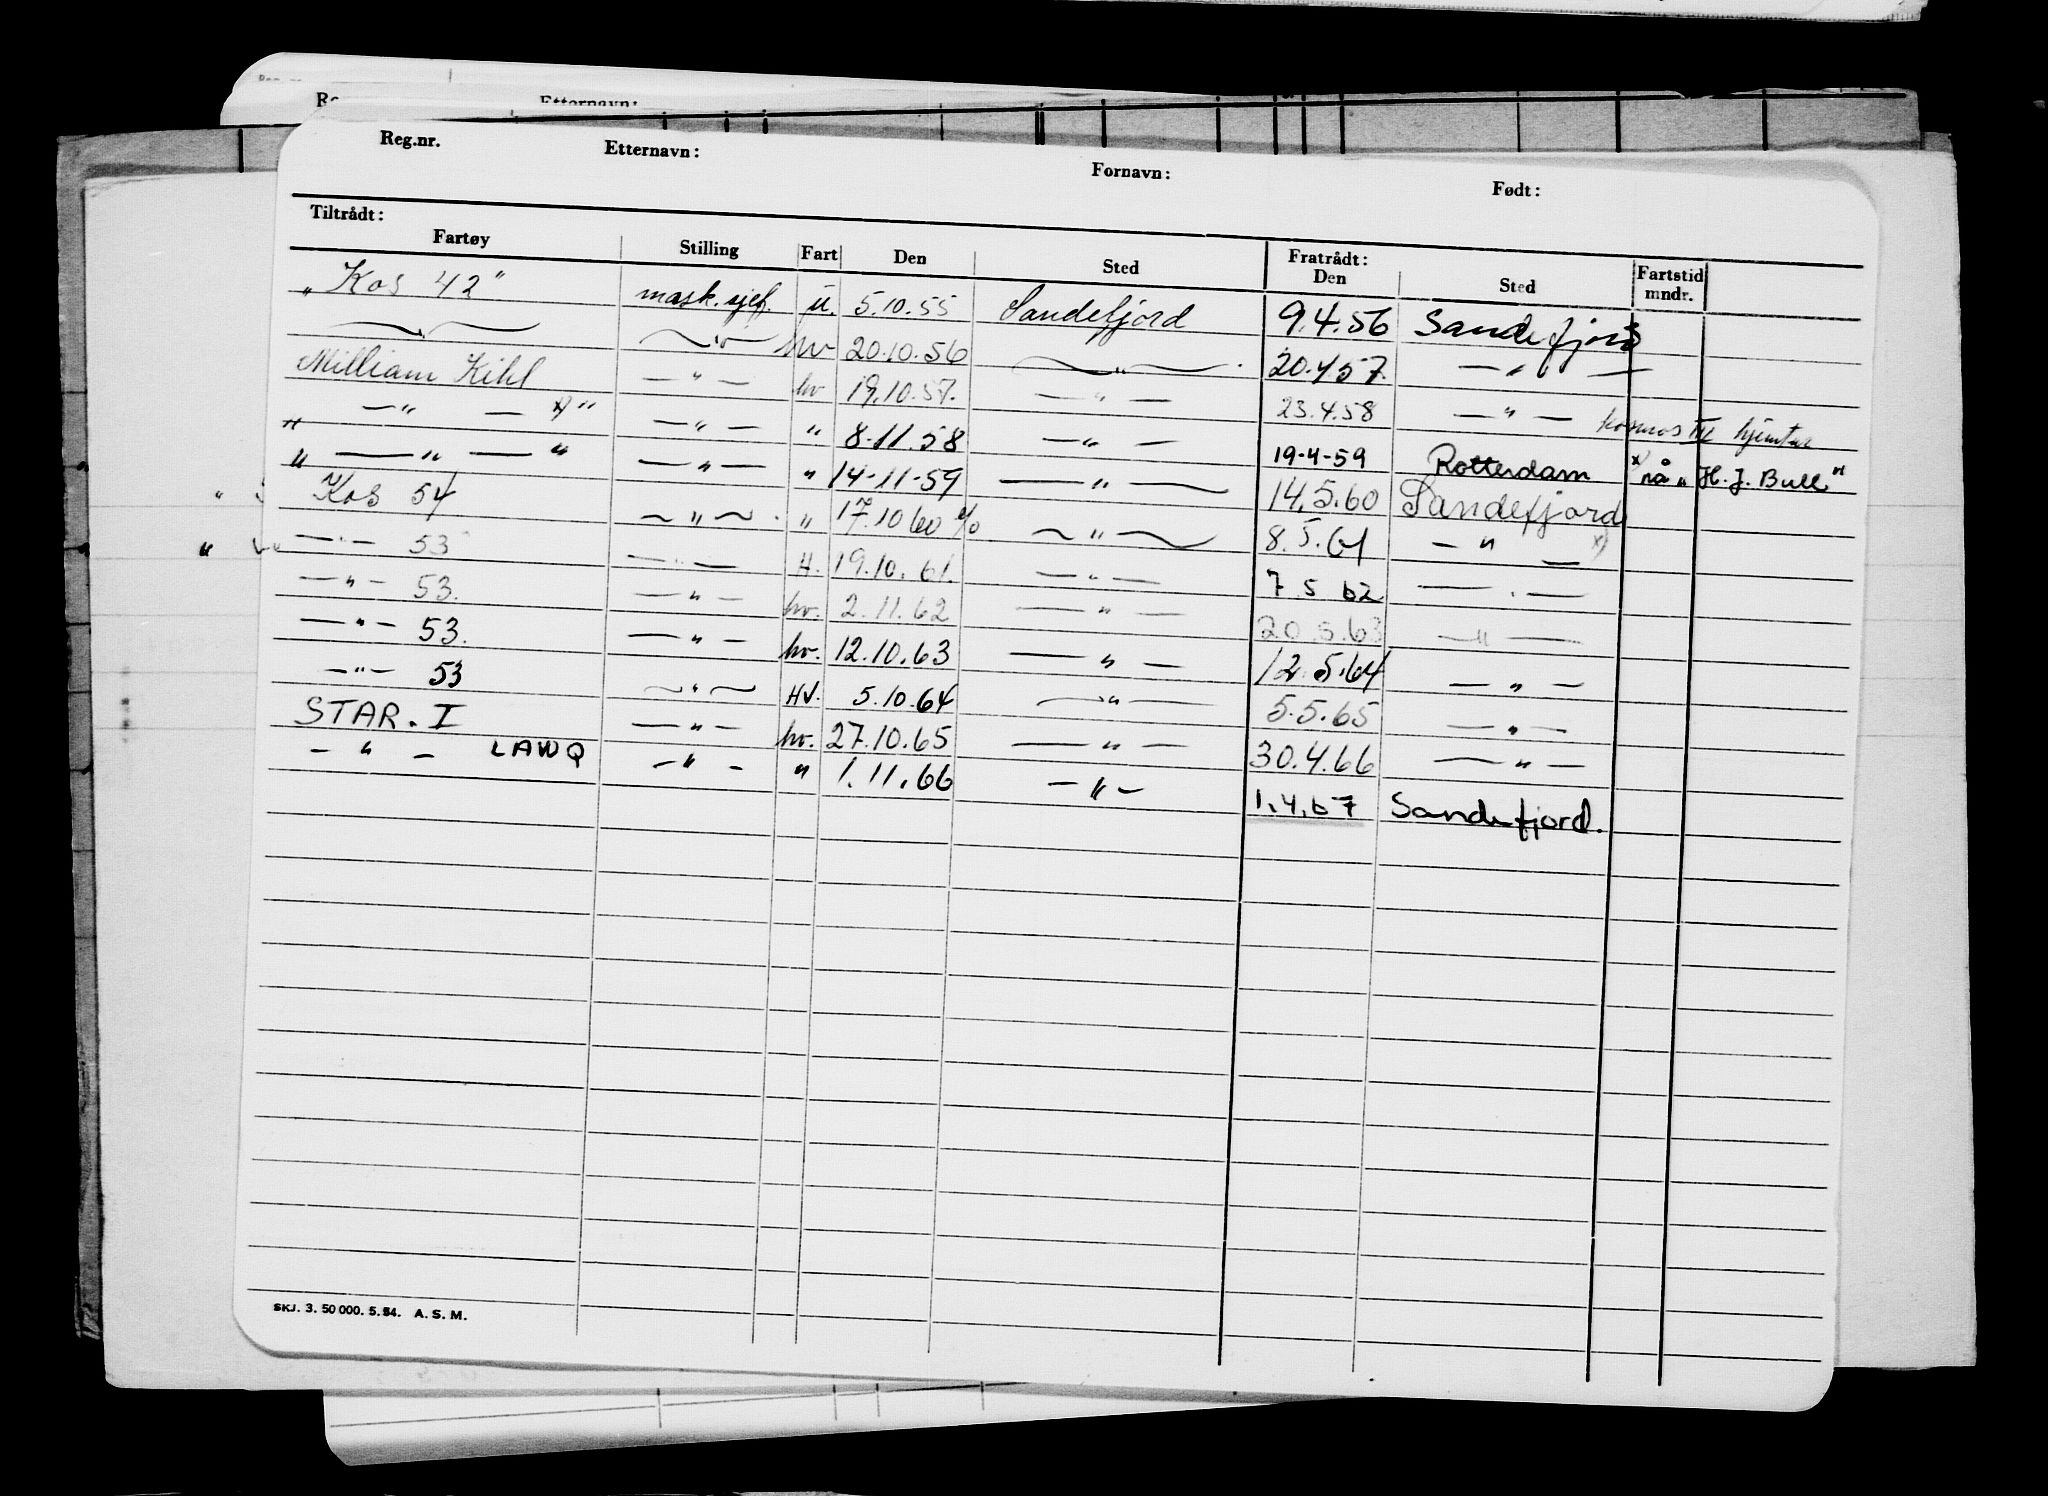 Reg.nr. Etternavn: Fornavn: Født:
Tiltrådt: Fratrådt:
Fartøy Stilling Fart Den Sted Den Sted Fartstid mndr.
„Kos 42" mask.sjef. u. 5.10.55 Sandefjord 9.4.56 Sandefjord
— " — — " — hv 20.10.56 — " — 20.4.57. — " —
William Kihl — " — hv 19.10.57. — " — 23.4.58 — " — Kosmos III hjemtur
" — " — x) " — " — " 8-11.58 — " — 19-4-59 Rotterdam x) nå „H. J. Bull"
" — " — " — " — " 14-11-59 — " — 14.5.60 Sandefjord
Kos 54 — " — " 17.10 60 — " — 8.5.61 — " — x)
— " — 53 — " — H. 19.10.61. — " — 7 5 62 — " —
— " — 53. — " — hv. 2.11.62 — " — 20.5.63 — " —
— " — 53. — " — hv. 12.10.63 — " — 12.5.64 — " —
— " — 53 — " — HV. 5.10.64 — " — 5.5.65 — " —
STAR. I — " — hv. 27.10.65 — " — 30.4.66 — " —
— " — LAWQ — " — " 1.11.66 — " — 1.4.67 Sandefjord.
SKJ. 3. 50 000. 5. 54. A. S. M.